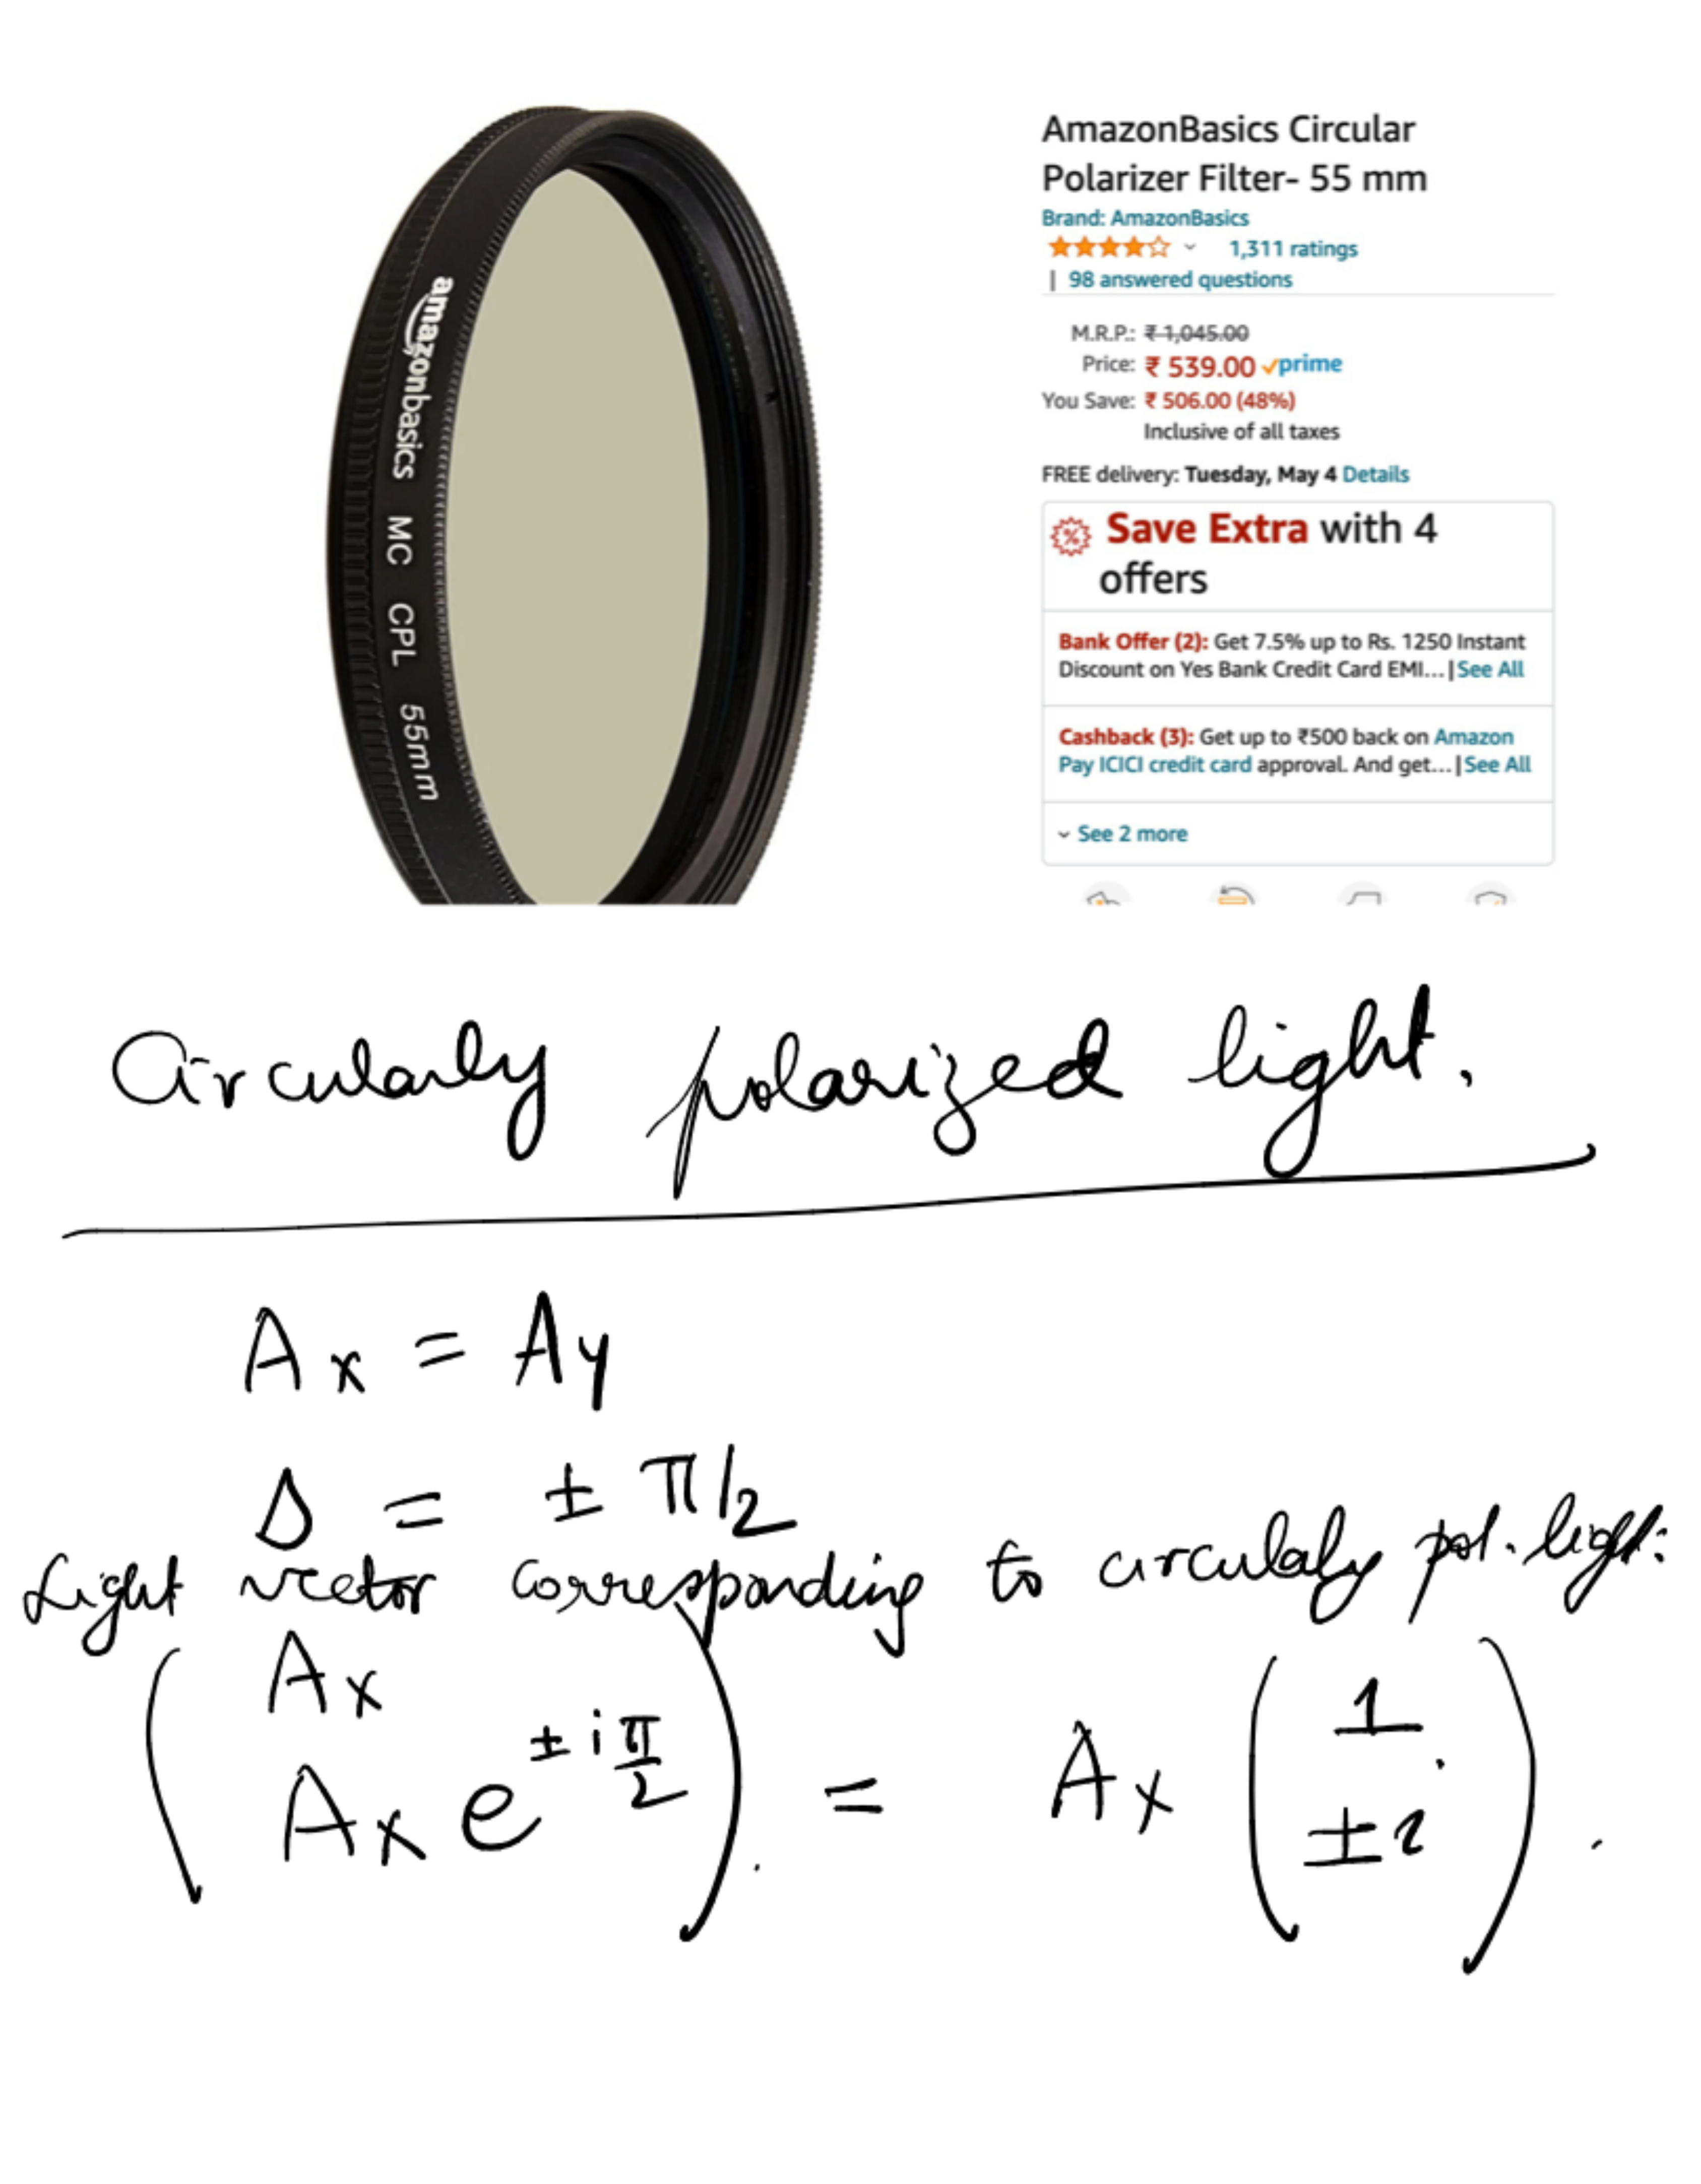 amazonbasics MC CPL 55mm
AmazonBasics Circular
Polarizer Filter- 55 mm
Brand: AmazonBasics
1,311 ratings
| 98 answered questions
M.R.P.: ₹ 1,045.00
Price: ₹ 539.00 prime
You Save: ₹ 506.00 (48%)
Inclusive of all taxes
FREE delivery: Tuesday, May 4 Details
Save Extra with 4
offers
Bank Offer (2): Get 7.5% up to Rs. 1250 Instant
Discount on Yes Bank Credit Card EMI... | See All
Cashback (3): Get up to ₹500 back on Amazon
Pay ICICI credit card approval. And get... | See All
See 2 more
Circularly polarized light.
Ax = Ay
Δ = ± π/2
Light vector corresponding to circulaly pol. light:
( Ax
Ax e^{± i π/2} ). = Ax ( 1
±i ).